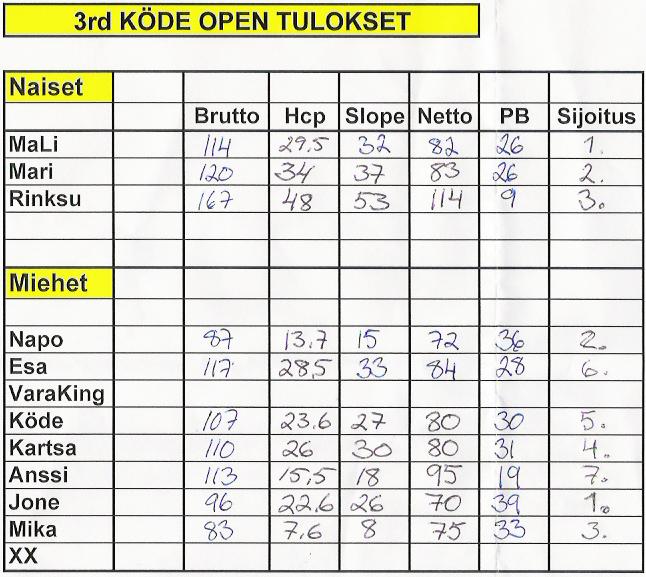 3rd KÖDE OPEN TULOKSET
Naiset
Brutto Hcp Slope Netto PB Sijoitus
MaLi 114 29.5 32 82 26 1.
Mari 120 34 37 83 26 2.
Rinksu 167 48 53 114 9 3.
Miehet
Napo 87 13.7 15 72 36 2.
Esa 117 28,5 33 84 28 6.
VaraKing
Köde 107 23.6 27 80 30 5.
Kartsa 110 26 30 80 31 4.
Anssi 113 15,5 18 95 19 7.
Jone 96 22,6 26 70 39 1.
Mika 83 7,6 8 75 33 3.
XX